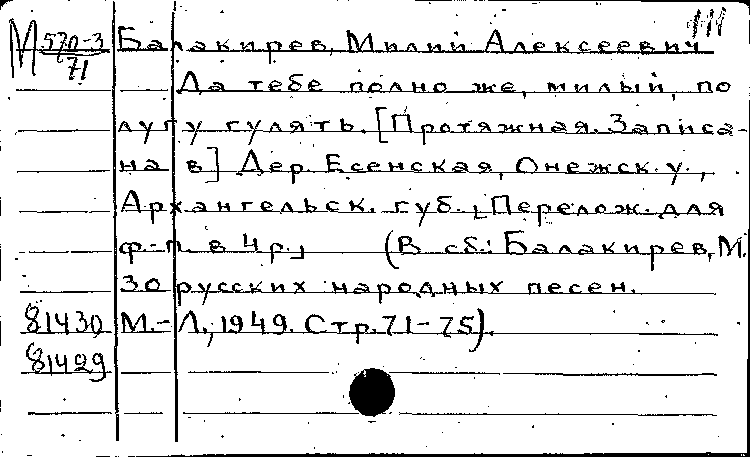 111
М 570-3/71 Балакирев, Милий Алексеевич
Да тебе полно же, милый, по
лугу гулять. [Протяжная. Записа-
на в] Дер. Есенская, Онежск. у.,
Архангельск. губ. [Перелож. для
ф-п. в 4 р.] (В сб.: Балакирев, М.
30 русских народных песен.
81430 М.-Л., 1949. Стр. 71-75).
81429